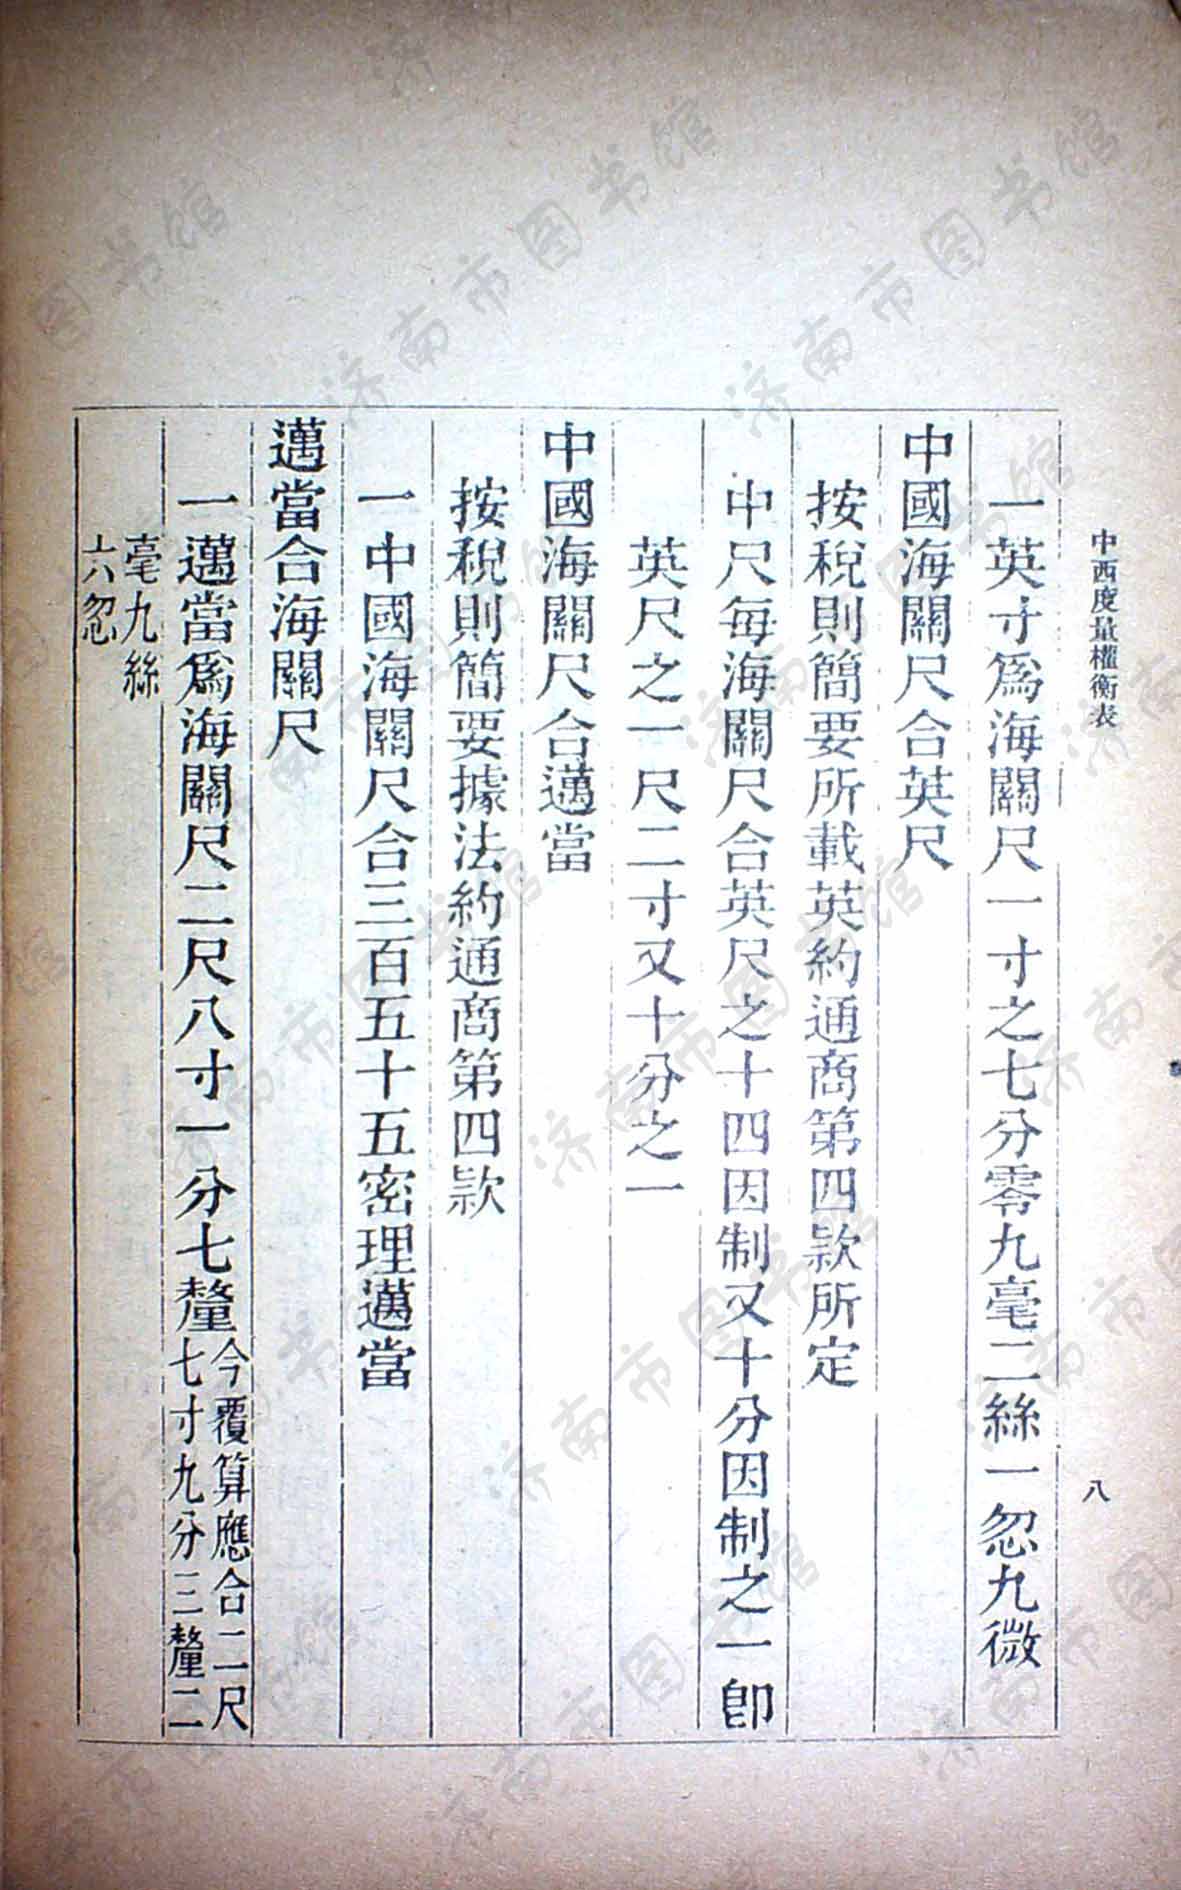 中西度量權衡表
八
一英寸爲海關尺一寸之七分零九毫二絲一忽九微
中國海關尺合英尺
按稅則簡要所載英約通商第四款所定
中尺每海關尺合英尺之十四因制又十分因制之一卽
英尺之一尺二寸又十分之一
中國海關尺合邁當
按稅則簡要據法約通商第四款
一中國海關尺合三百五十五密理邁當
邁當合海關尺
一邁當爲海關尺二尺八寸一分七釐
今覆算應合二尺
七寸九分三釐二
毫九絲
六忽
济南市图书馆